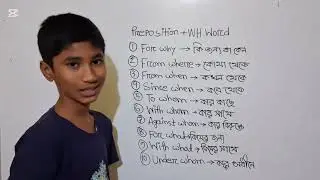 Preposition + WH Word
① For why → কি জন্য বা কেন
② From where → কোথা থেকে
③ From when → কখন থেকে
④ Since when → কবে থেকে
⑤ To whom → কার কাছে
⑥ With whom → কার সাথে
⑦ Against whom → কার বিরুদ্ধে
⑧ For what → কিসের জন্য
⑨ With what → কিসের সাথে
⑩ Under whom → কার অধীনে